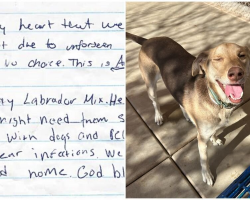 y heart that we
t due to unforseen
o choice. This is A
ny Labrador Mix. He
night need them s
with dogs and
ear infations. We
d home. God bl